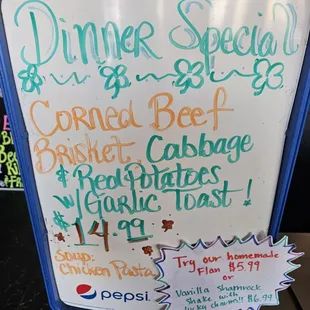 Dinner Special
Corned Beef
Brisket, Cabbage
& Red Potatoes
w/ Garlic Toast!
$14.99
Soup:
Chicken Pasta
pepsi
Try our homemade
Flan $5.99
or
Vanilla Shamrock
Shake with
lucky charms!! $6.99